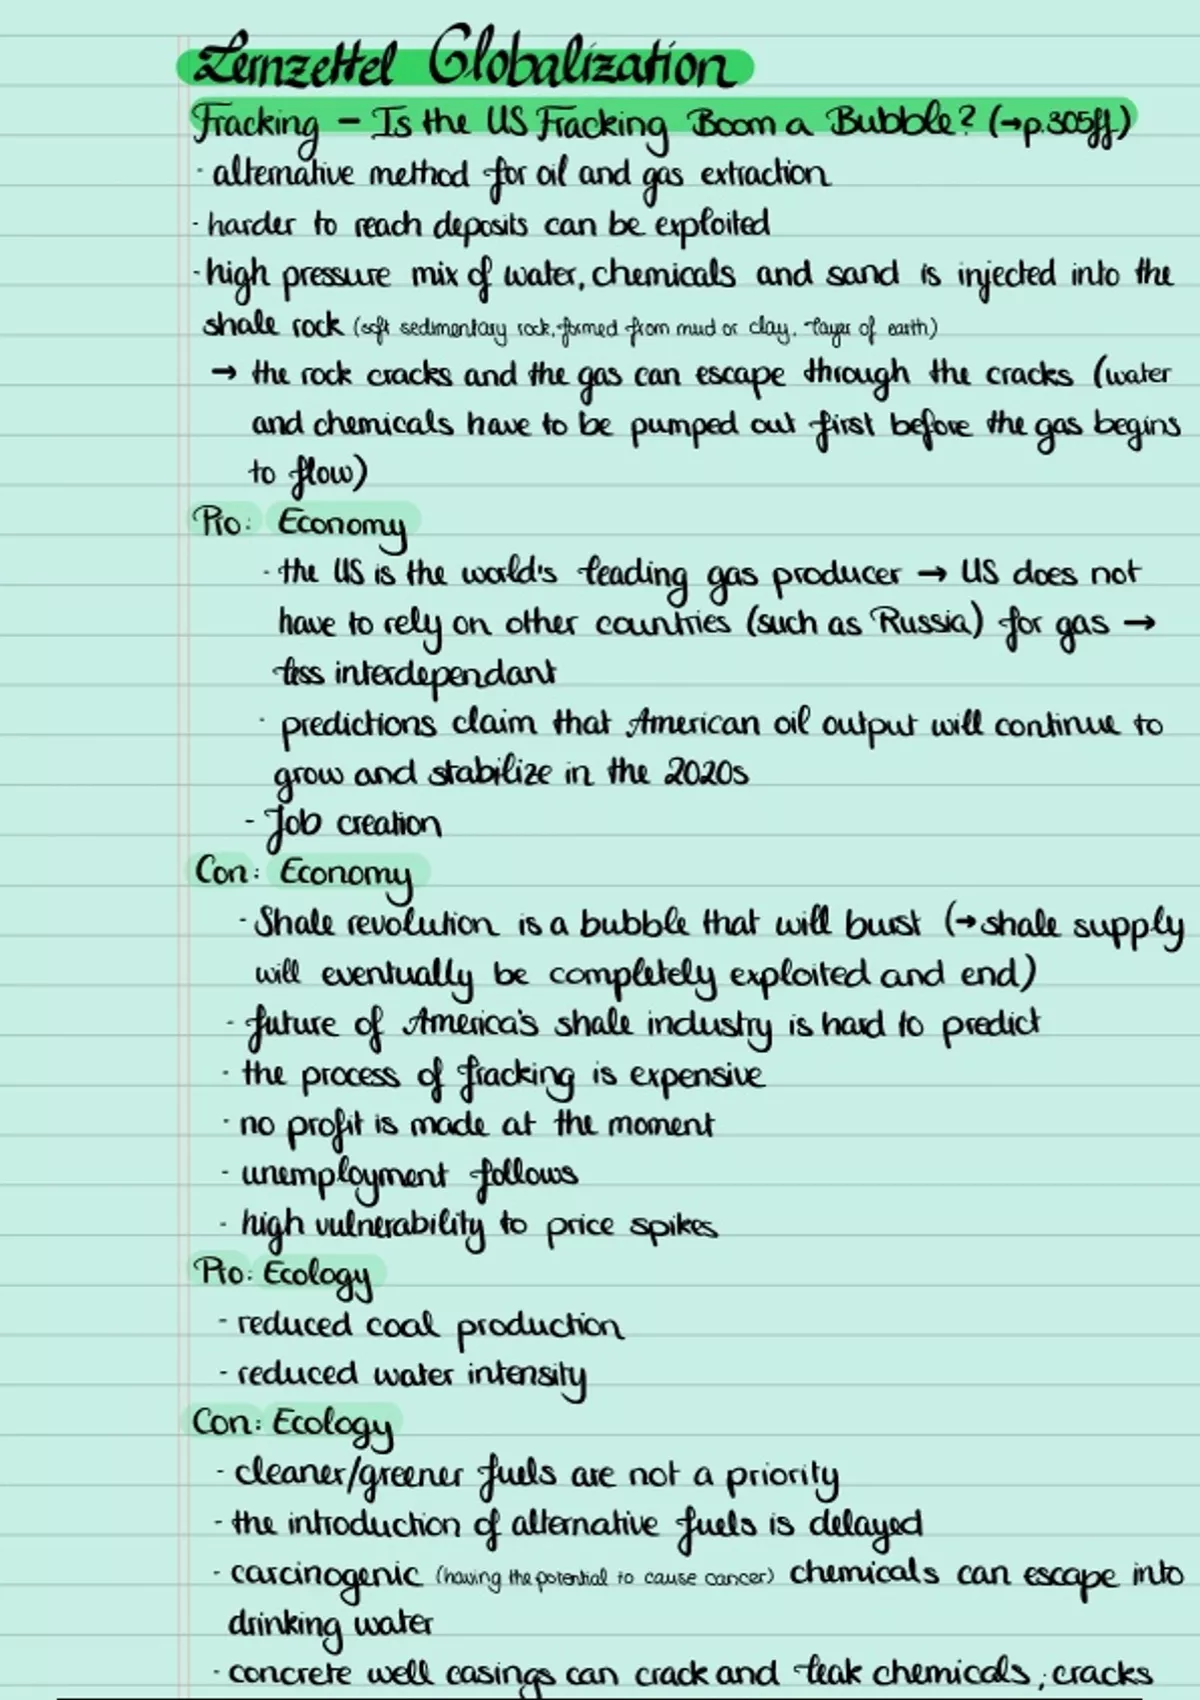 Lernzettel Globalization
Fracking – Is the US Fracking Boom a Bubble? (→p.305ff.)
· alternative method for oil and gas extraction
· harder to reach deposits can be exploited
· high pressure mix of water, chemicals and sand is injected into the
shale rock (soft sedimentary rock, formed from mud or clay, layer of earth)
→ the rock cracks and the gas can escape through the cracks (water
and chemicals have to be pumped out first before the gas begins
to flow)
Pro: Economy
· the US is the world's leading gas producer → US does not
have to rely on other countries (such as Russia) for gas →
less interdependant
· predictions claim that American oil output will continue to
grow and stabilize in the 2020s
- Job creation
Con: Economy
· Shale revolution is a bubble that will burst (→ shale supply
will eventually be completely exploited and end)
· future of America's shale industry is hard to predict
· the process of fracking is expensive
· no profit is made at the moment
· unemployment follows
· high vulnerability to price spikes
Pro: Ecology
- reduced coal production
- reduced water intensity
Con: Ecology
· cleaner/greener fuels are not a priority
· the introduction of alternative fuels is delayed
· carcinogenic (having the potential to cause cancer) chemicals can escape into
drinking water
· concrete well casings can crack and leak chemicals; cracks